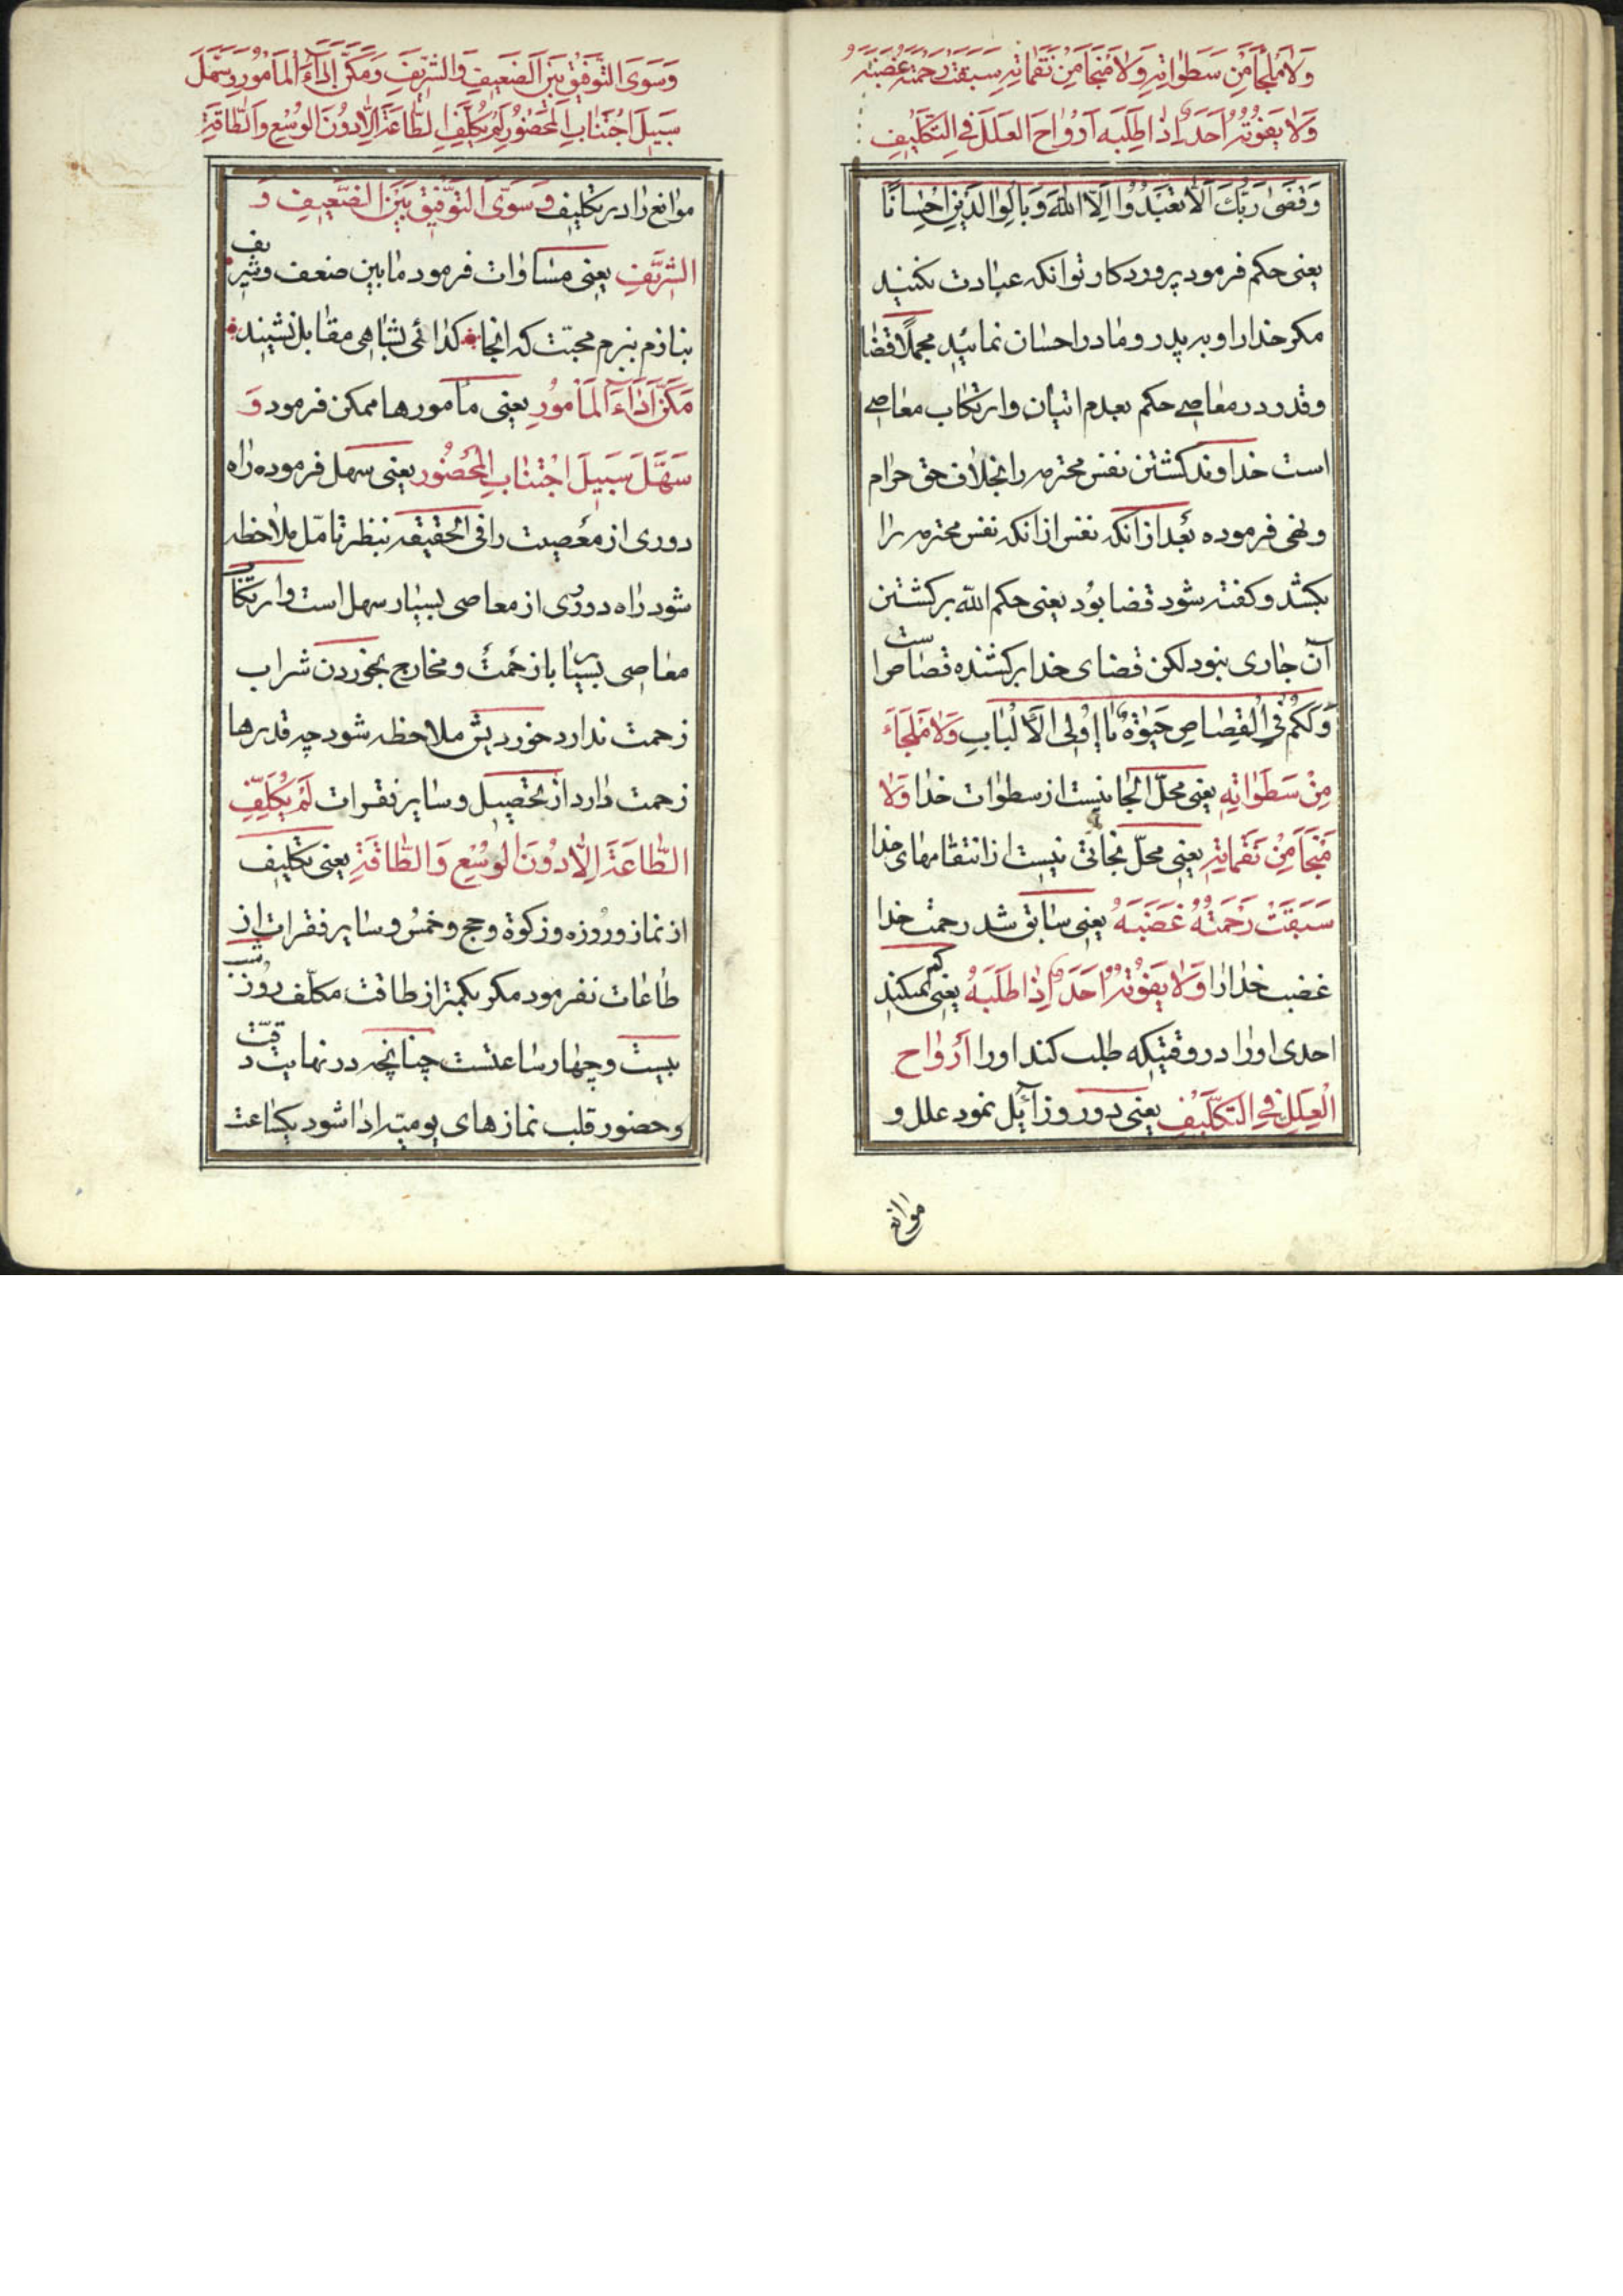 وَلَا مَلْجَأَ مِنْ سَطَوٰاتِهِ وَلَا مَنْجَا مِنْ نَقَمٰاتِهِ سَبَقَتْ رَحْمَتُهُ غَضَبَهُ
وَلَا يَفُوتُهُ اَحَدٌ اِذٰا طَلَبَهُ اَزْوٰاحَ العِلَلَ فِي التَّكْلَيفِ
وَقَضىٰ رَبُّكَ اَلّٰا تَعْبُدُوا اِلّٰا اللّٰهَ وَبِالْوٰالِدَيْنِ اِحْسٰانًا
یعنی حکم فرمود پروردکار تو انکه عبادت نکنید
مکر خدا را و بر پدر و مادر احسان نمائید مجملًا قضا
و قدر در معاصے حکم بعدم اتیان و ارتکاب معاصے
است خداوند کشتن نفس محترمه را بخلاف حق حرام
و نهی فرموده بعد از انکه نفس از انکه نفس محترمه را
بکشد و کفته شود قضا بود یعنی حکم اللّه بر کشتن
آن جاری بنود لکن قضای خدا بر کشنده قصاص است
وَلَكُمْ فِي الْقِصٰاصِ حَيٰوةٌ يٰا اُولِي الْاَلْبٰابِ وَلَا مَلْجَاءَ
مِنْ سَطَوٰاتِهِ یعنی محلّ التجا نیست از سطوات خدا وَلٰا
مَنْجَا مِنْ نَقَمٰاتِهِ یعنی محلّ نجاتی نیست از انتقامهای خدا
سَبَقَتْ رَحْمَتُهُ غَضَبَهُ یعنی سابق شد رحمت خدا
غضب خدا را وَلٰا يَفُوتُهُ اَحَدٌ اِذٰا طَلَبَهُ یعنی کم نمیکند
احدی او را در وقتیکه طلب کند او را اَزْوٰاح
الْعِلَلِ فِي التَّكْلَيْفِ یعنی دور و زایل نمود علل و
موانع
وَسَوَى التَّوْفَيْقَ بَيْنَ الضَعَيفِ وَالشَّرَيفِ وَمَكَّنَ اَدٰاءَ الْمَأْمُورِ وَسَهَّلَ
سَبِيلَ اجْتِنٰابِ الْمَحْضُورِ لَمْ يُكَلِّفِ الطّٰاعَةَ اِلّٰا دُونَ الوُسْعِ وَالطّٰاقَةِ
موانع را در تکلیف وَسَوَّى التَّوْفَيقَ بَيْنَ الضَّعَيفِ وَ
الشَّرَيفِ یعنی مساوات فرمود مابین ضعف و شریف
بنازم ببزم محبت که انجا کدائی بشاهی مقابل نشیند
مَكَّنَ اَدٰاءَ الْمَأْمُورِ یعنی مأمورها ممکن فرمود وَ
سَهَّلَ سَبِيلَ اجْتِنٰابِ الْمَحْضُورِ یعنی سهل فرموده راه
دوری از معصیت را فی الحقیقه بنظر تامّل ملاحظه
شود راه دوری از معاصی بسیار سهل است و ارتکاب
معاصی بسیار با زحمت و مخارج نخوردن شراب
زحمت ندارد خوردنش ملاحظه شود چه قدرها
زحمت دارد از تحصیل و سایر فقرات لَمْ يُكَلِّفِ
الطّٰاعَةَ اِلّٰا دُونَ الْوُسْعِ وَالطّٰاقَةِ یعنی تکلیف
از نماز و روزه و زکوة و حج و خمس و سایر فقرات از
طاعات نفرمود مکر بکمتر از طاقت مکلّف روز و شب
بیست و چهار ساعتست چنانچه در نهایت دقّت
و حضور قلب نمازهای یومیّه ادا شود یکساعت